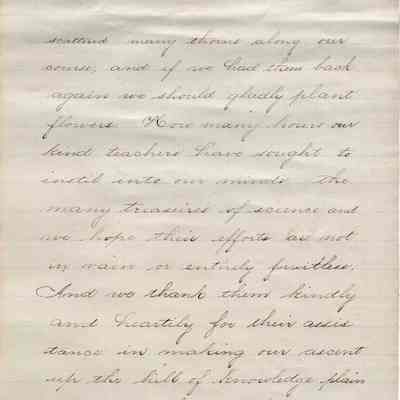 scattered many thorns along our
course, and if we had them back
again we should gladly plant
flowers. How many hours our
kind teachers have sought to
instil into our minds the
many treasures of science and
we hope their efforts are not
in vain or entirely fruitless.
And we thank them kindly
and heartily for their assis
tance in making our ascent
up the hill of knowledge plain